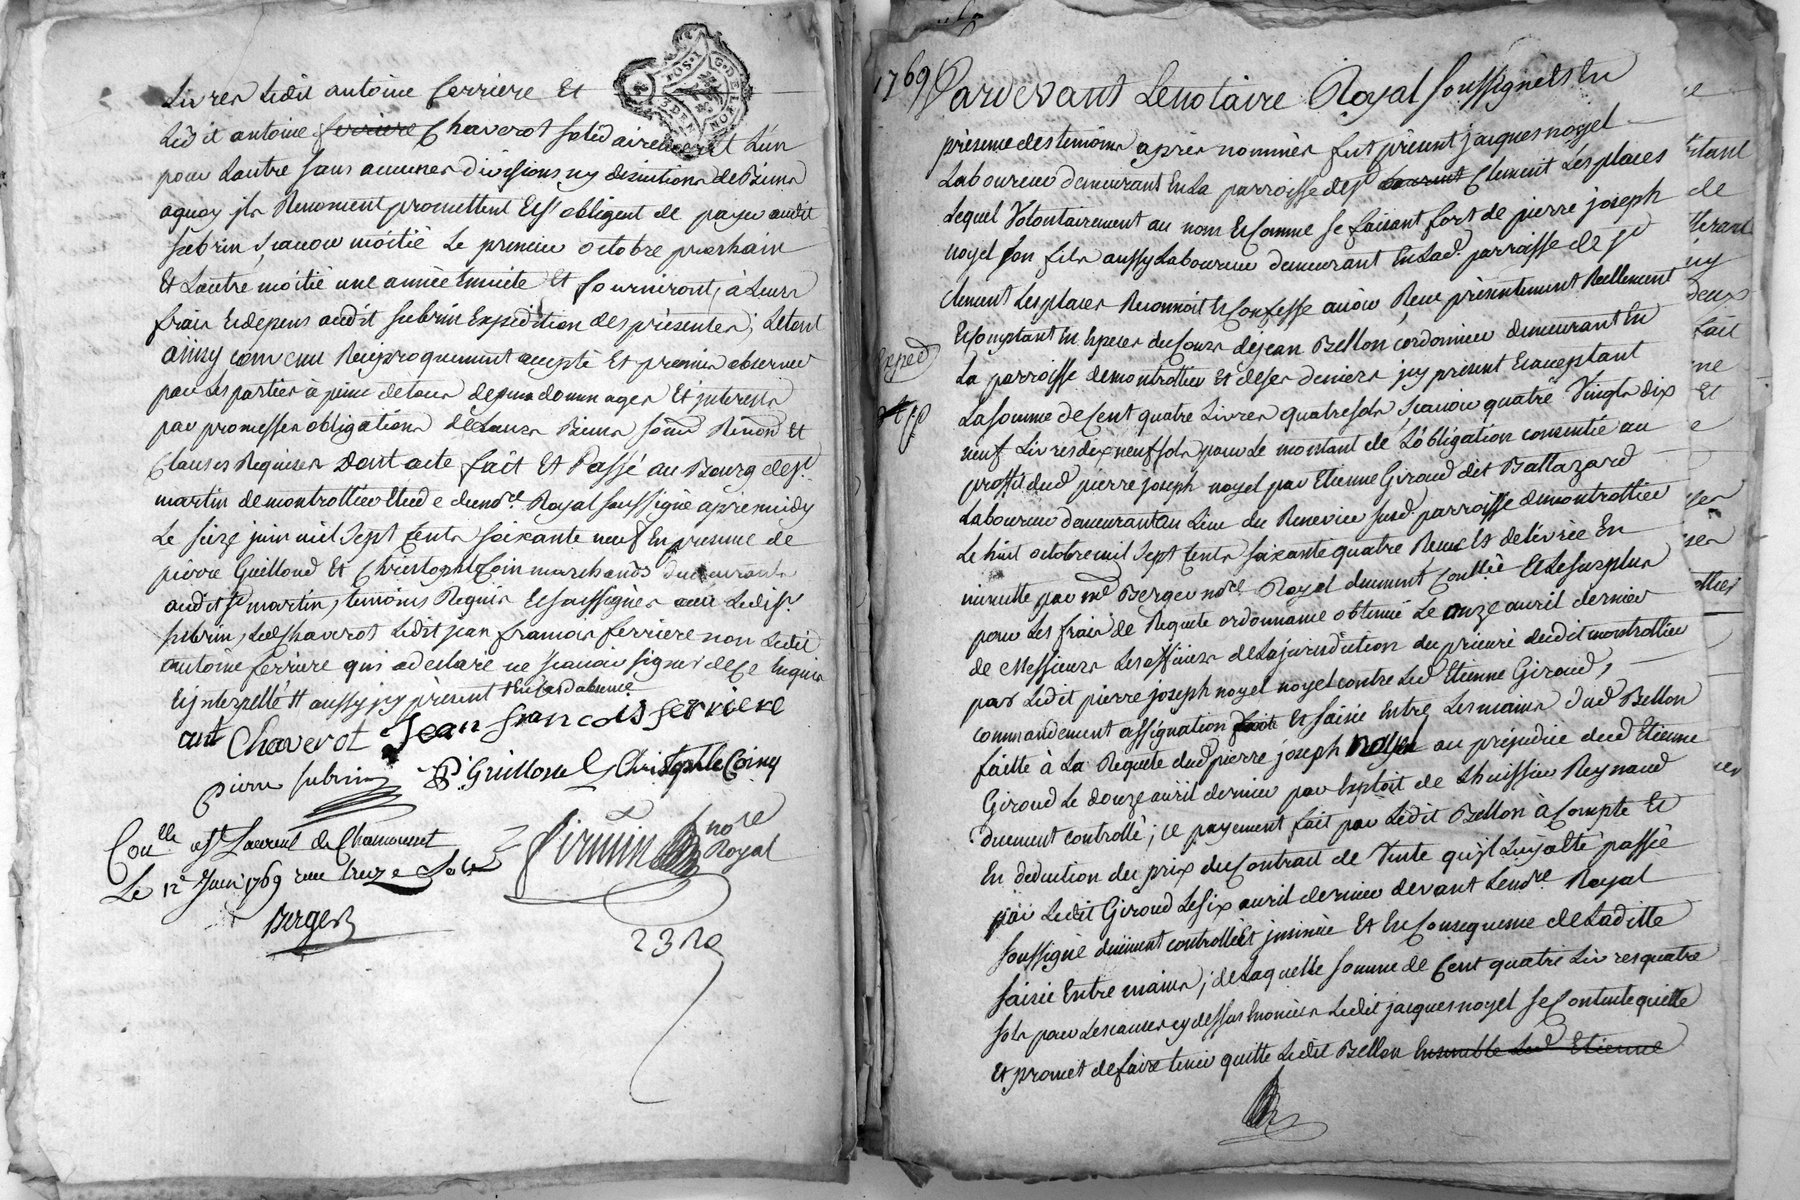 Livres Ledit antoine ferriere Et
Ledit antoine ferriere Chaverot solidairement L'un
pour Lautre sans aucunes divisions ny discutions de Biens
aquoy ils Renoncent promettent Et s'obligent de payer audit
subrin, scavoir moitié Le premier octobre prochain
Et Lautre moitié une année Ensuite Et fourniront, à Leurs
frais Et depens audit subrin Expedition des presentes; Letout
ainsy convenu Reciproquement accepté Et promis observer
par Les parties à peine de tous depens dommages Et interests
par promesses obligations de Leurs Biens soum. Renon. Et
Clauses Requises Dont acte fait Et Passé au Bourg de st.
martin de montrottier Etude du nore. Royal soussigné après midy
Le seize juin mil sept Cents soixante neuf En presence de
pierre Guilloud Et Christophle Coin marchands demeurants
audit st martin, temoins Requis Et soussignés avec Ledit sr.
subrin, Led. Chaverot Ledit jean francois ferriere non Ledit
antoine ferriere qui a declaré ne scavoir signer de ce Enquis
Et interpellé tt aussy icy present tt En cas d'absence
ant Chaverot Jean francois ferriere
pierre subrin P. Guilloud Christophle Coing
Conlle. a St. Laurent de Chamousset
Le 12e Juin 1769 reçu treize sols
Firmin nore Royal
Berger
23 12
G. D. DE LYON
1769
Pardevant Lenotaire Royal soussigné Et En
présence des temoins après nommés fut présent jacques noyel
Laboureur demeurant En La parroisse de st. Laurent Clement Les places
Lequel Volontairement au nom Et Comme se faisant fort de pierre joseph
noyel son fils aussy Laboureur demeurant En Lad. parroisse de st
Clement Les places Reconnoit Et Confesse avoir Reçu présentement Reellement
Et Comptant En Espèces du Cours de jean Bellon cordonnier demeurant En
Exped
La parroisse de montrottier Et de ses deniers icy present Et acceptant
La somme de Cent quatre Livres quatre sols, scavoir quatre Vingts dix
neuf Livres dix neuf sols pour Le montant de L'obligation consentie au
proffit dud. pierre joseph noyel par Etienne Giroud dit Baltazard
Laboureur demeurant au Lieu du Renevier susd. parroisse de montrottier
Le huit octobre mil sept Cents soixante quatre Reçue Et delivrée En
minutte par me Berger nore. Royal duement Conllée Et Le surplus
pour Les frais de Requete ordonnance obtenue Le onze avril dernier
de Messieurs Les officiers de La jurisdiction du prieuré dudit montrottier
par Ledit pierre joseph noyel noyel contre Led. Etienne Giroud,
commandement assignation faite Et saisie Entre Les mains dud. Bellon
faitte à La Requete dud. pierre joseph noyel au préjudice dud. Etienne
Giroud Le douze avril dernier par Exploit de L'huissier Reynaud
duement controllé; Ce payement fait par Ledit Bellon à Compte Et
En deduction du prix du Contrait de Vente qu'il Luy a Eté passée
par Ledit Giroud Le six avril dernier devant Le nore. Royal
soussigné duement controllé Et insinué Et En Consequence de Laditte
saisie Entre mains; de Laquelle somme de Cent quatre Livres quatre
sols pour Les causes cy dessus Enoncées Ledit jacques noyel se Contente quitte
Et promet de faire tenir quitte Ledit Bellon Ensemble Led. Etienne